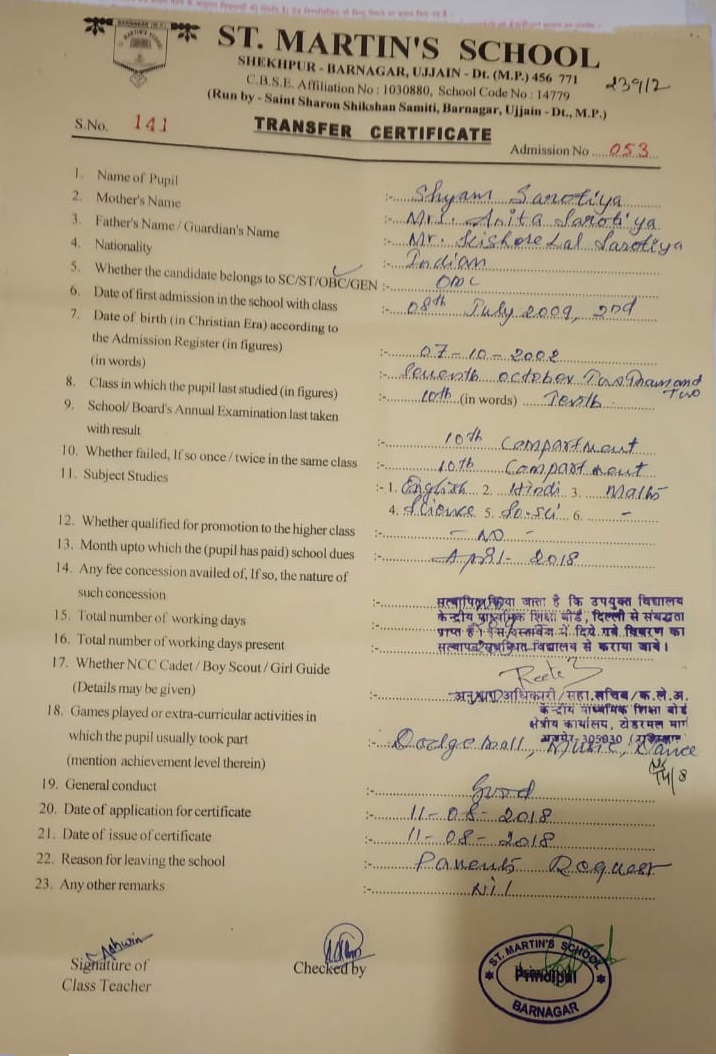 BARNAGAR (M.P.)
ST. MARTIN'S
SCHOOL
ST. MARTIN'S SCHOOL
SHEKHPUR - BARNAGAR, UJJAIN - Dt. (M.P.) 456 771
C.B.S.E. Affiliation No : 1030880, School Code No : 14779
239/2
(Run by - Saint Sharon Shikshan Samiti, Barnagar, Ujjain - Dt., M.P.)
S.No. 141
TRANSFER CERTIFICATE
Admission No ..... 053
1. Name of Pupil :- Shyam Sarotiya
2. Mother's Name :- Mrs. Anita Sarotiya
3. Father's Name / Guardian's Name :- Mr. Kishore Lal Sarotiya
4. Nationality :- Indian
5. Whether the candidate belongs to SC/ST/OBC/GEN :- OBC
6. Date of first admission in the school with class :- 08th July 2009, 2nd
7. Date of birth (in Christian Era) according to
the Admission Register (in figures) :- 07-10-2002
(in words) :- Seventh october Two Thousand Two
8. Class in which the pupil last studied (in figures) :- 10th (in words) Tenth
9. School/ Board's Annual Examination last taken
with result :- 10th Compartment
10. Whether failed, If so once / twice in the same class :- 10th Compartment
11. Subject Studies :- 1. English 2. Hindi 3. Maths
4. Science 5. So.sci 6. -
12. Whether qualified for promotion to the higher class :- - NO -
13. Month upto which the (pupil has paid) school dues :- April- 2018
14. Any fee concession availed of, If so, the nature of
such concession :-
सत्यापित किया जाता है कि उपयुक्त विद्यालय
15. Total number of working days :-
केन्द्रीय माध्यमिक शिक्षा बोर्ड, दिल्ली से संबद्धता
16. Total number of working days present :-
प्राप्त है। इस दस्तावेज में दिये गये विवरण का
सत्यापन विद्यालय से कराया जाये।
17. Whether NCC Cadet / Boy Scout / Girl Guide
(Details may be given) :-
अनुभाग अधिकारी/सहा.सचिव/क.ले.अ.
केन्द्रीय माध्यमिक शिक्षा बोर्ड
क्षेत्रीय कार्यालय, टोडरमल मार्ग
अजमेर-305030
18. Games played or extra-curricular activities in
which the pupil usually took part :- Dodge ball, Music, Dance
(mention achievement level therein)
19. General conduct :- Good
20. Date of application for certificate :- 11-08-2018
21. Date of issue of certificate :- 11-08-2018
22. Reason for leaving the school :- Parents Request
23. Any other remarks :- Nil
Ashwin
Signature of
Class Teacher
Checked by
ST. MARTIN'S SCHOOL
Principal
BARNAGAR